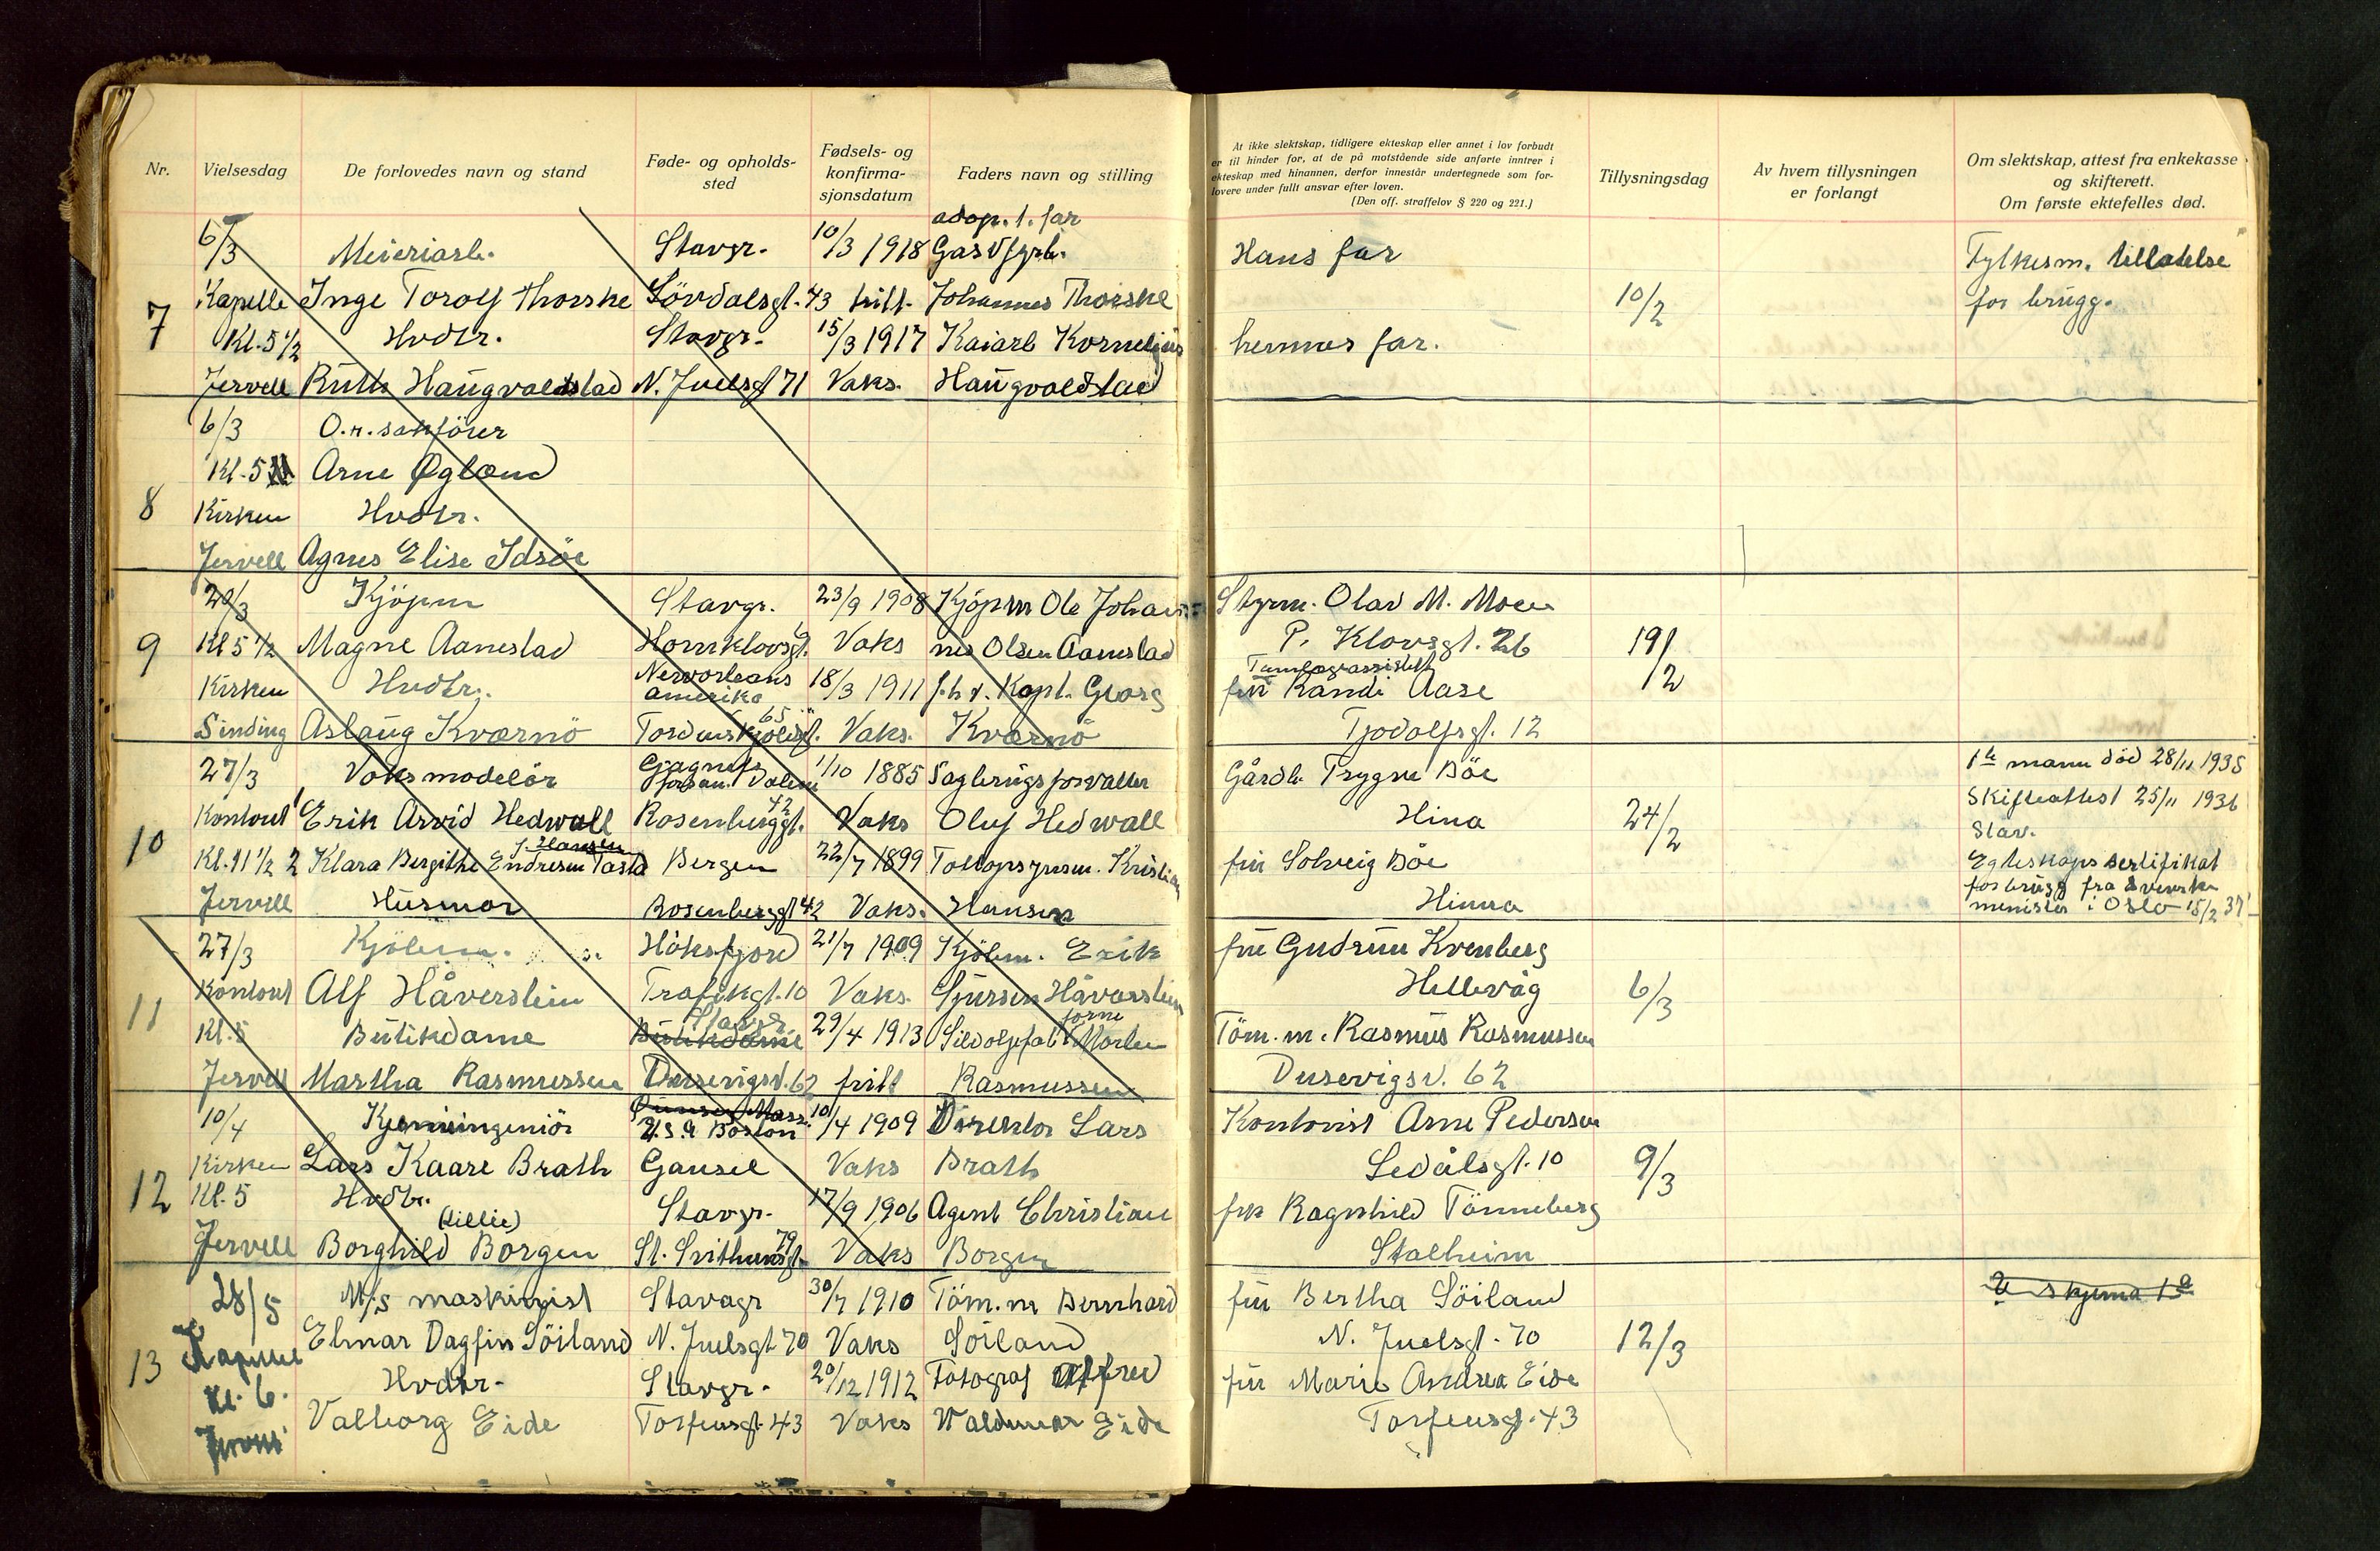 Nr.
Vielsesdag
De forlovedes navn og stand
Føde- og opholds-
sted
Fødsels- og
konfirma-
sjonsdatum
Faders navn og stilling
At ikke slektskap, tidligere ekteskap eller annet i lov forbudt
er til hinder for, at de på motstående side anførte inntrer i
ekteskap med hinannen, derfor innestår undertegnede som for-
lovere under fullt ansvar efter loven.
(Den off. straffelov § 220 og 221.)
Tillysningsdag
Av hvem tillysningen
er forlangt
Om slektskap, attest fra enkekasse
og skifterett.
Om første ektefelles død.
adop. f. far
6/3 Meieriarb. Stavgr. 10/3 1918 Gasvfyrb. Hans far Fylkesm. tillatelse
7 Kapelle Inge Torolf Thorske Lövdalsgt. 43 fritt. Johannes Thorske 10/2 for brugg.
Kl. 5 1/2 Hvdtr. Stavgr. 15/3 1917 Kaiarb Kornelius hennes far.
Jervell Ruth Haugvaldstad N. Juelsgt 71 Vaks. Haugvaldstad
6/3 O.r. sakförer
Kl. 5 Arne Øglænd
8 Kirken Hvdtr.
Jervell Agnes Elise Idsöe
20/3 Kjöpm Stavgr. 23/9 1908 Kjöpm Ole Johan- Styrm. Olav M. Moen
9 Kl 5 1/2 Magne Aanestad Hornklovsgt. Vaks nes Olsen Aanestad P. Klovsgt. 26 19/2
Kirken Hvdtr. Neworleans Amerika 18/3 1911 f.h.v. Kapt. Georg fru Randi Aase
Sinding Aslaug Kværnö Tordenskjoldsgt. 65 Vaks. Kværnö Tjodolfsgt. 12
27/3 Voksmodelör 1/10 1885 Sagbrugsforvalter Gårdb. Trygve Böe 1ste mann död 28/11 1935
10 Kontoret 1 Erik Arvid Hedwall Rosenberggt. 42 Vaks Oluf Hedwall Hina 24/2 Skifteattest 25/11 1936
Stav.
f. Hansen
Kl. 11 1/2 2 Klara Bergithe Endresen Tasta Bergen 22/7 1899 Toldopsynsm. Kristian fru Solveig Böe Egteskapssertifikat
for brugg fra svenske
Jervell Husmor Rosenberggt 42 Vaks. Hansen Hinna minister i Oslo 15/2 37
27/3 Kjöbm. Höksfjord 21/7 1909 Kjöbm. Erik fru Gudrun Kvenberg
11 Kontoret Alf Håverstein Trafikgt. 10 Vaks. Sjursen Håvarstein Hellevåg 6/3
Kl. 5 Butikdame Stavgr. Butikdame 29/4 1913 Sildoljefab. Morten Töm. m. Rasmus Rasmussen
Jervell Martha Rasmussen Dusevigsv. 62 fritt Rasmussen Dusevigsv. 62
10/4 Kjemiingeniör Quinsey Mass. U.S.A Boston 10/4 1909 Direktör Lars Kontorist Arne Pedersen
12 Kirken Lars Kaare Brath Gausel Vaks Brath Ledålsgt. 10 9/3
Kl. 5 Hvdtr. Stavgr. 17/9 1906 Agent Christian frk Ragnhild Tönneberg
(Lillie)
Jervell Borghild Borgen St. Svithunsgt. 79 Vaks Borgen Stalheim
28/5 M/S maskinist Stavagr 30/7 1910 Töm. m Bernhard fru Bertha Söiland
13 Kapelle Elmar Dagfin Söiland N. Juelsgt 70 Vaks Söiland N. Juelsgt. 70 12/3
Kl. 6. Hvdtr. Stavgr. 20/12 1912 Fotograf Alfred fru Marie Andrea Eide
Valborg Eide Torfeusgt. 43 Vaks Waldemar Eide Torfeusgt. 43